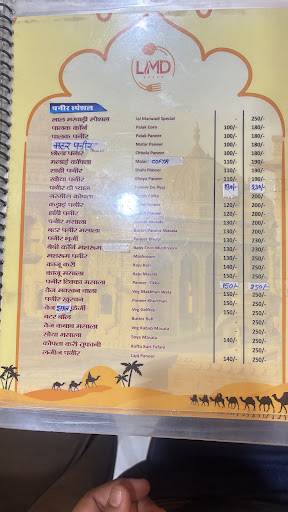 LMD
पनीर स्पेशल
लाल मारवाड़ी स्पेशल Lal Marwadi Special 250/-
पालक कॉर्न Palak Corn 100/- 180/-
पालक पनीर Palak Paneer 100/- 180/-
मटर पनीर Mutter Paneer 100/- 180/-
छोला पनीर Chhola Paneer 100/- 180/-
मलाई कोफ्ता Malai COFTA 100/- 190/-
शाही पनीर Shahi Paneer 110/- 190/-
खोया पनीर Khoya Paneer 110/- 190/-
पनीर दो प्याजा Paneer Do Pyaz
नरगीस कोफ्ता
कड़ाई पनीर 120/- 200/-
हांडी पनीर 120/- 200/-
पनीर मसाला 130/- 200/-
बटर पनीर मसाला Butter Paneer Masala 130/- 230/-
पनीर भुर्जी Paneer Bhurji 130/- 230/-
बेबी कॉर्न मशरूम Baby Corn Mushroom 130/- 230/-
मशरूम पनीर Mushroom 130/- 230/-
काजू करी Kaju Kari 140/- 250/-
काजू मसाला Kaju Masala 140/- 250/-
पनीर टिक्का मसाला Paneer Tikka 150/- 250/-
वेज मक्खन वाला Veg Makhan Wala 150/- 250/-
पनीर खुरचन Paneer Khurchan 150/- 250/-
वेज Veg 150/- 250/-
बटर बॉल Butter Ball 250/-
वेज कबाब मसाला Veg Kabab Masala 250/-
सोया मसाला Soya Masala 140/- 250/-
कोफ्ता करी Kofta Kari 250/-
लजीज पनीर Lajij Paneer 140/- 250/-